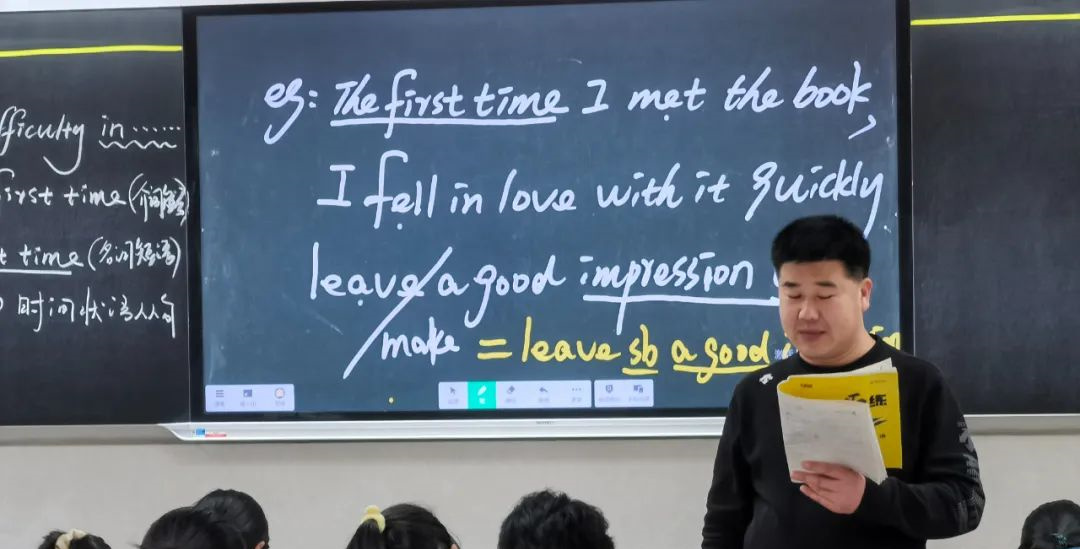 fficulty in ......
first time (介词短语)
t time (名词短语)
时间状语从句
eg: The first time I met the book,
I fell in love with it quickly
leave/a good impression
/make = leave sb a good
练